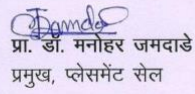 प्रा. डॉ. मनोहर जमदाडे
प्रमुख, प्लेसमेंट सेल